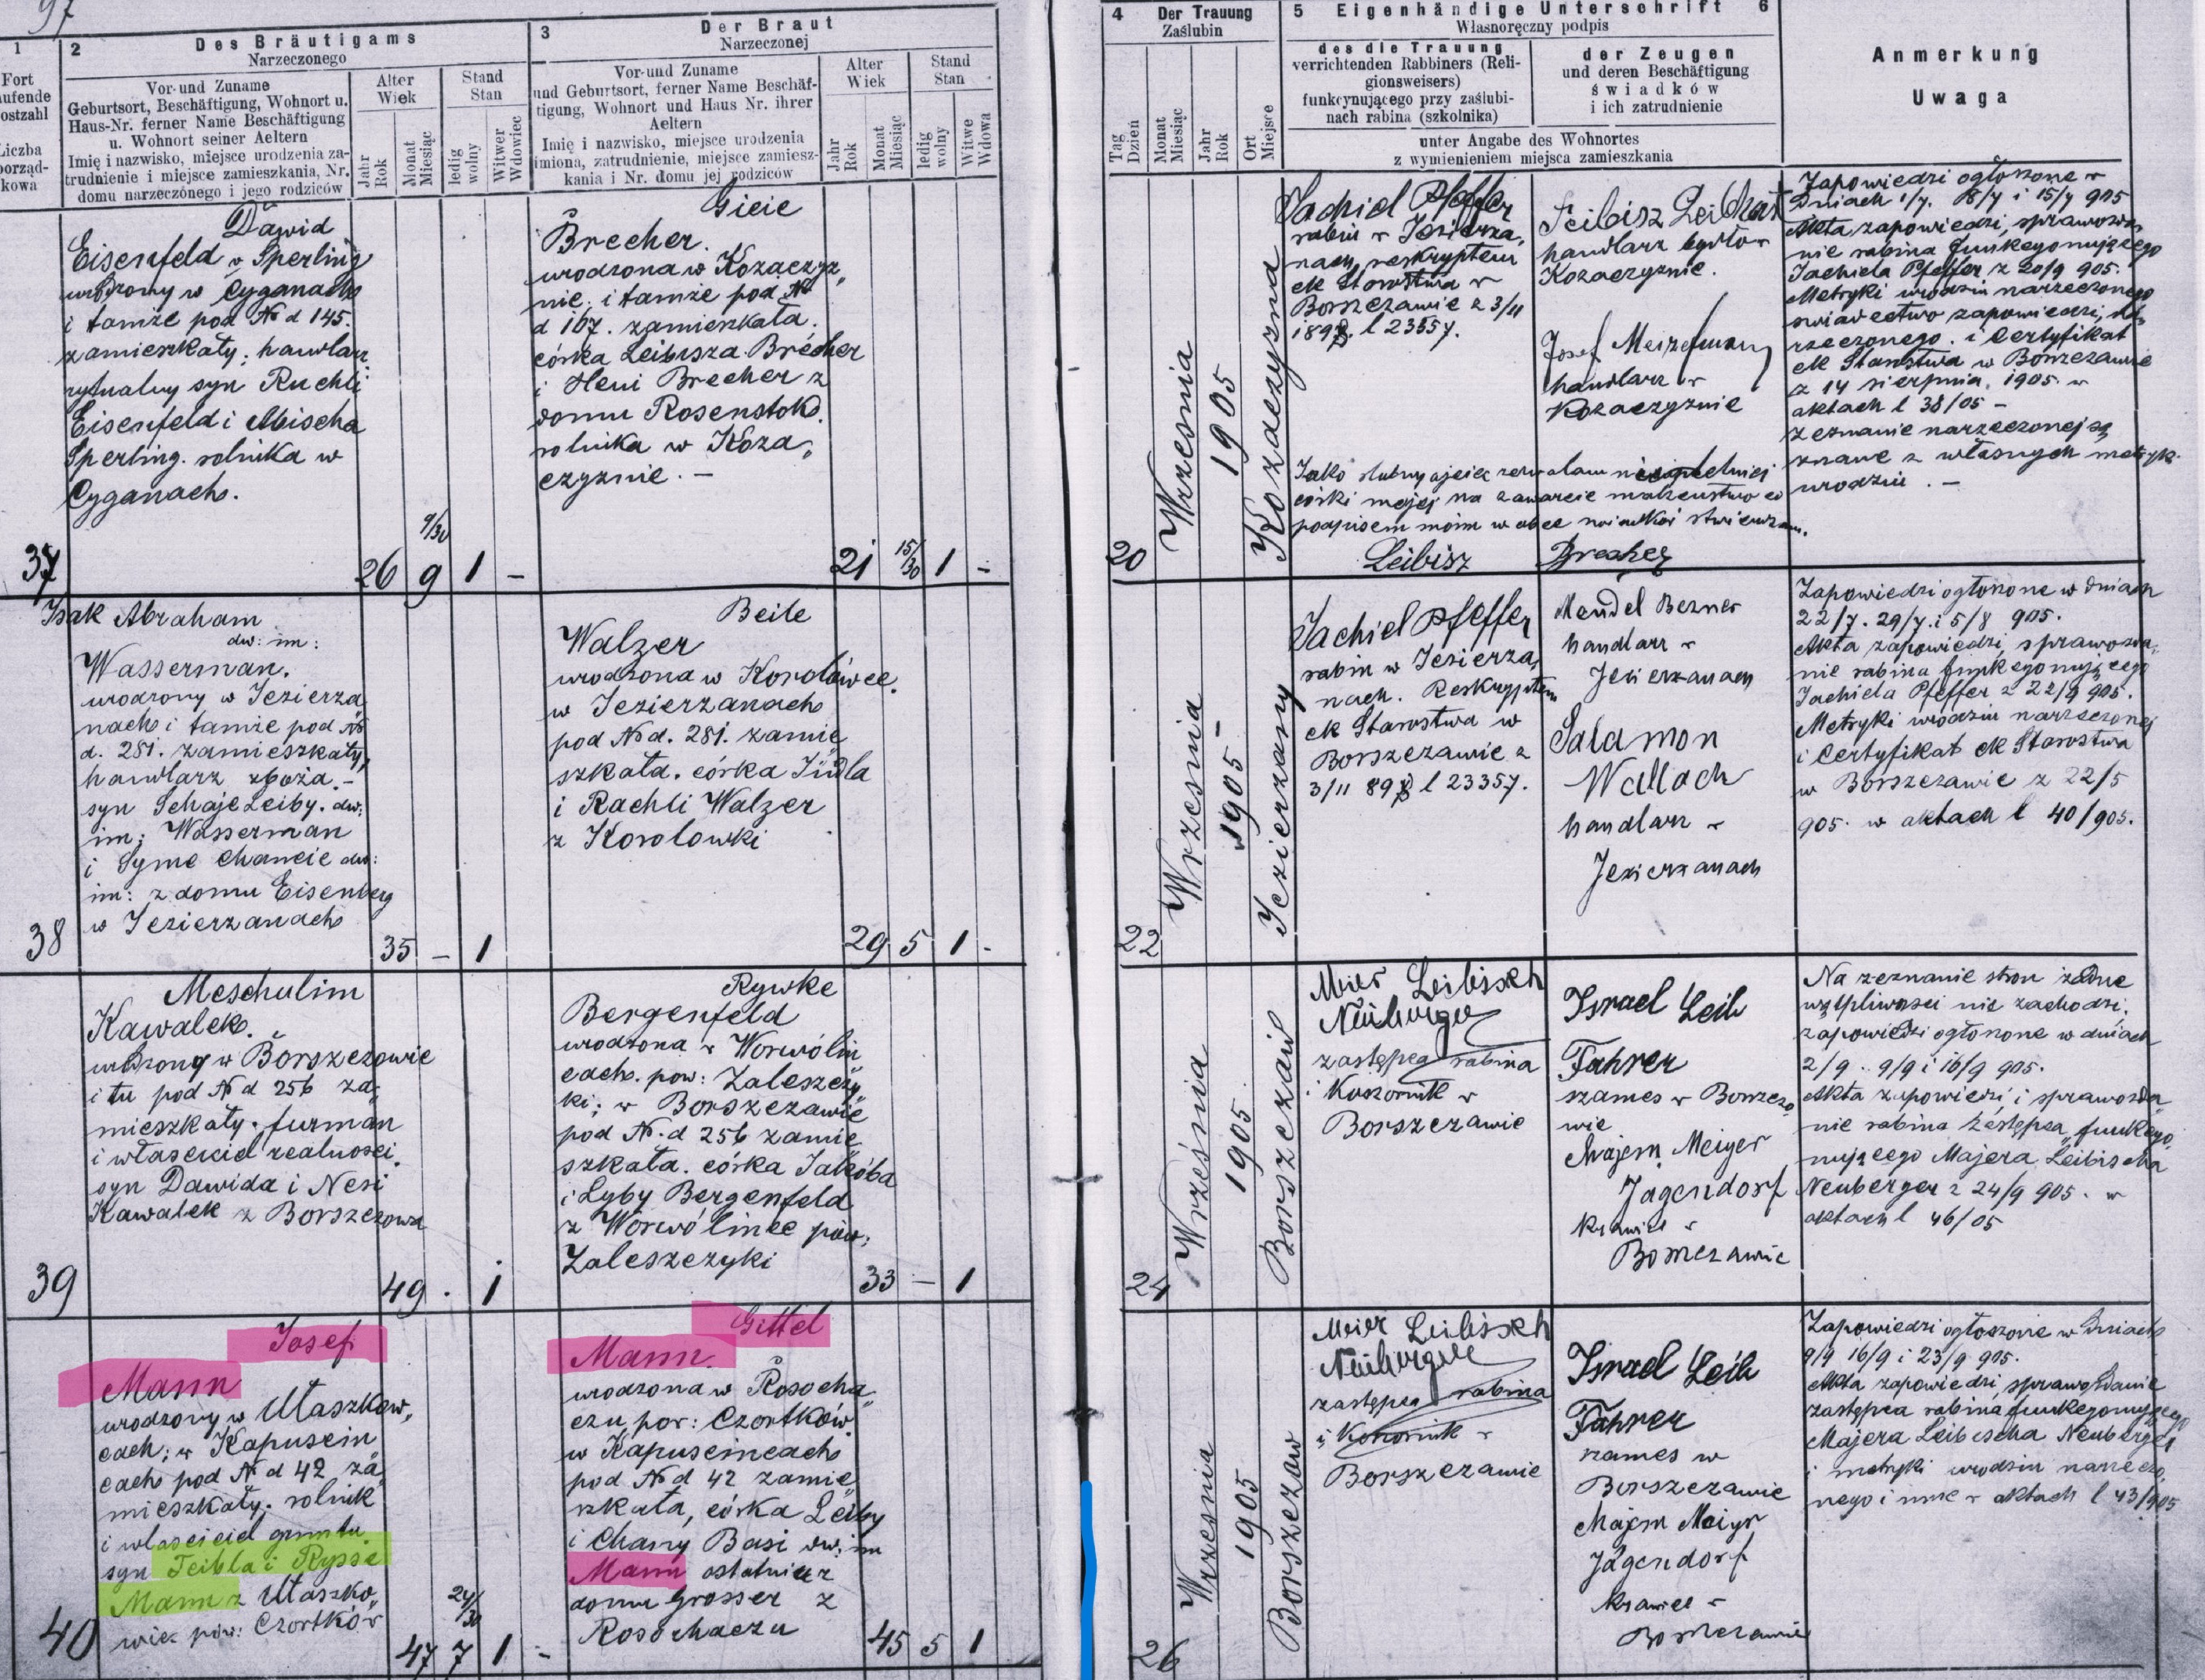 97
1
Fort
laufende
Postzahl
Liczba
porząd-
kowa
2
Des Bräutigams
Narzeczonego
Vor- und Zuname
Geburtsort, Beschäftigung, Wohnort u.
Haus-Nr. ferner Name Beschäftigung
u. Wohnort seiner Aeltern
Imię i nazwisko, miejsce urodzenia za-
trudnienie i miejsce zamieszkania, Nr.
domu narzeczónego i jego rodziców
Alter
Wiek
Jahr
Rok
Monat
Miesiąc
Stand
Stan
ledig
wolny
Witwer
Wdowiec
3
Der Braut
Narzeczonej
Vor- und Zuname
und Geburtsort, ferner Name Beschäf-
tigung, Wohnort und Haus Nr. ihrer
Aeltern
Imię i nazwisko, miejsce urodzenia
imiona, zatrudnienie, miejsce zamiesz-
kania i Nr. domu jej rodziców
Alter
Wiek
Jahr
Rok
Monat
Miesiąc
Stand
Stan
ledig
wolny
Witwe
Wdowa
4
Der Trauung
Zaślubin
Tag
Dzień
Monat
Miesiąc
Jahr
Rok
Ort
Miejsce
5 Eigenhändige Unterschrift 6
Własnoręczny podpis
des die Trauung
verrichtenden Rabbiners (Reli-
gionsweisers)
funkcynującego przy zaślubi-
nach rabina (szkolnika)
der Zeugen
und deren Beschäftigung
świadków
i ich zatrudnienie
unter Angabe des Wohnortes
z wymienieniem miejsca zamieszkania
Anmerkung
Uwaga
37
Dawid
Eisenfeld v Sperling
urodzony w Cyganach
i tamże pod No d 145.
zamieszkały, handlarz
rytualny syn Ruchli
Eisenfeld i Mischa
Sperling. rolnika w
Cyganach.
26
9
9/30
1
-
Gicie
Brecher.
urodzona w Kozaczyz„
nie i tamże pod No
d 167. zamieszkała.
córka Leibisza Brecher
i Heni Brecher z
domu Rosenstok
rolnika w Koza„
czyznie. -
21
15/30
1
-
20
Wrzesnia
1905
Kozaczyzna
Jachiel Pfeffer
rabin w Jezierza,
nach, reskryptem
ck Starostwa w
Borszczowie z 3/11
1898. l 23357.
Leibisz
handlarz bydła w
Kozaczyznie.
Josef
handlarz w
Kozaczyznie
Jako ślubny ojciec zezwalam niepełniej
córki mojej na zawarcie małżeństwa co
podpisem moim w obec świadków stwierdzam.
Leibisz Brecher
Zapowiedzi ogłoszone w
Dniach 1/7. 8/7 i 15/7 905
Akta zapowiedzi, sprawozda
nie rabina funkcyonującego
Jachiela Pfeffer z 20/9 905.
Metryki urodzin narzeczonego
swiadectwo zapowiedzi, na„
rzeczonego. i Certyfikat
ck Starostwa w Borszczowie
z 14 sierpnia. 1905. w
aktach l 38/05 -
Zeznanie narzeczonej są
znane z własnych metryk
urodzin. -
38
Isak Abraham
dw: im:
Wasserman.
urodzony w Jezierza„
nach i tamże pod No
d. 281. zamieszkały,
handlarz zboża. -
syn Schaje Leiby. dw:
im: Wasserman
i Syme Chancie dw:
im: z domu Eisenberg
w Jezierzanach
35
-
1
Beile
Walzer
urodzona w Korolówce.
w Jezierzanach
pod No d. 281. zamie„
szkała. córka Judla
i Rachli Walzer
z Korolowki
29
5
1
-
22
Wrzesnia
1905 -
Jezierzany
Jachiel Pfeffer
rabin w Jezierza„
nach. Reskryptem
ck Starostwa w
Borszczowie z
3/11 898 l 23357.
Mendel Berner
handlarz w
Jezierzanach
Salamon
Wallach
handlarz w
Jezierzanach
Zapowiedzi ogłoszone w dniach
22/7. 29/7. i 5/8 905.
Akta zapowiedzi, sprawozda„
nie rabina funkcyonującego
Jachiela Pfeffer z 22/9 905.
Metryki urodzin narzeczonej
i Certyfikat ck Starostwa
w Borszczowie z 22/5
905. w aktach l 40/905.
39
Meschulim
Kawalek.
urodzony w Borszczowie
i tu pod No d 256 za„
mieszkały. furman
i własciciel realnosci.
syn Dawida i Nesi
Kawalek z Borszczowa
49
.
1
Rywke
Bergenfeld
urodzona w Worwolin
cach. pow: Zaleszczy„
ki; w Borszczowie
pod No. d 256 zamie„
szkała. córka Jakóba
i Lyby Bergenfeld
z Worwólince pow:
Zaleszczyki
33
-
1
24
Września
1905
Borszczów
Meier Leibisch
Neuberger
zastępca rabina
i Koszornik w
Borszczowie
Israel Leib
Fahrer
szames w Borszczo„
wie
Majem Meiyer
Jagendorf
krawiec w
Borszczowie
Na zeznanie stron żadne
wątpliwosci nie zachodzi,
zapowiedzi ogłoszone w dniach
2/9. 9/9 i 16/9 905.
Akta zapowiedzi i sprawozda„
nie rabina zastępca funkcyo„
nującego Majera Leibischa
Neuberger z 24/9 905. w
aktach l 46/05
40
Josef
Mann
urodzony w Ułaszkow„
cach; w Kapuscin„
cach pod No d 42 za„
mieszkały. rolnik
i własciciel gruntu
syn Feibla i Rysse
Mann z Ułaszko„
wiec pow: Czortków
47
7
24/30
1
-
Gittel
Mann.
urodzona w Rosocha„
czu, pow: Czortków.
w Kapuscincach
pod No d 42 zamie„
szkała, córka Leiby
i Chany Basi dw. im
Mann ostatniej z
domu Grosser z
Rosochaczu
45
5
1
26
Wrzesnia
1905
Borszczow
Meier Leibisch
Neuberger
zastępca rabina
i Koszornik w
Borszczowie
Israel Leib
Fahrer
szames w
Borszczowie
Majem Meiyr
Jagendorf
krawiec w
Borszczowie
Zapowiedzi ogłoszone w dniach
9/9 16/9 i 23/9 905.
Akta zapowiedzi, sprawozdanie
zastępca rabina funkcyonującego
Majera Leibischa Neuberger
i metryki urodzin narzeczo„
nego i nnne w aktach l 43/905